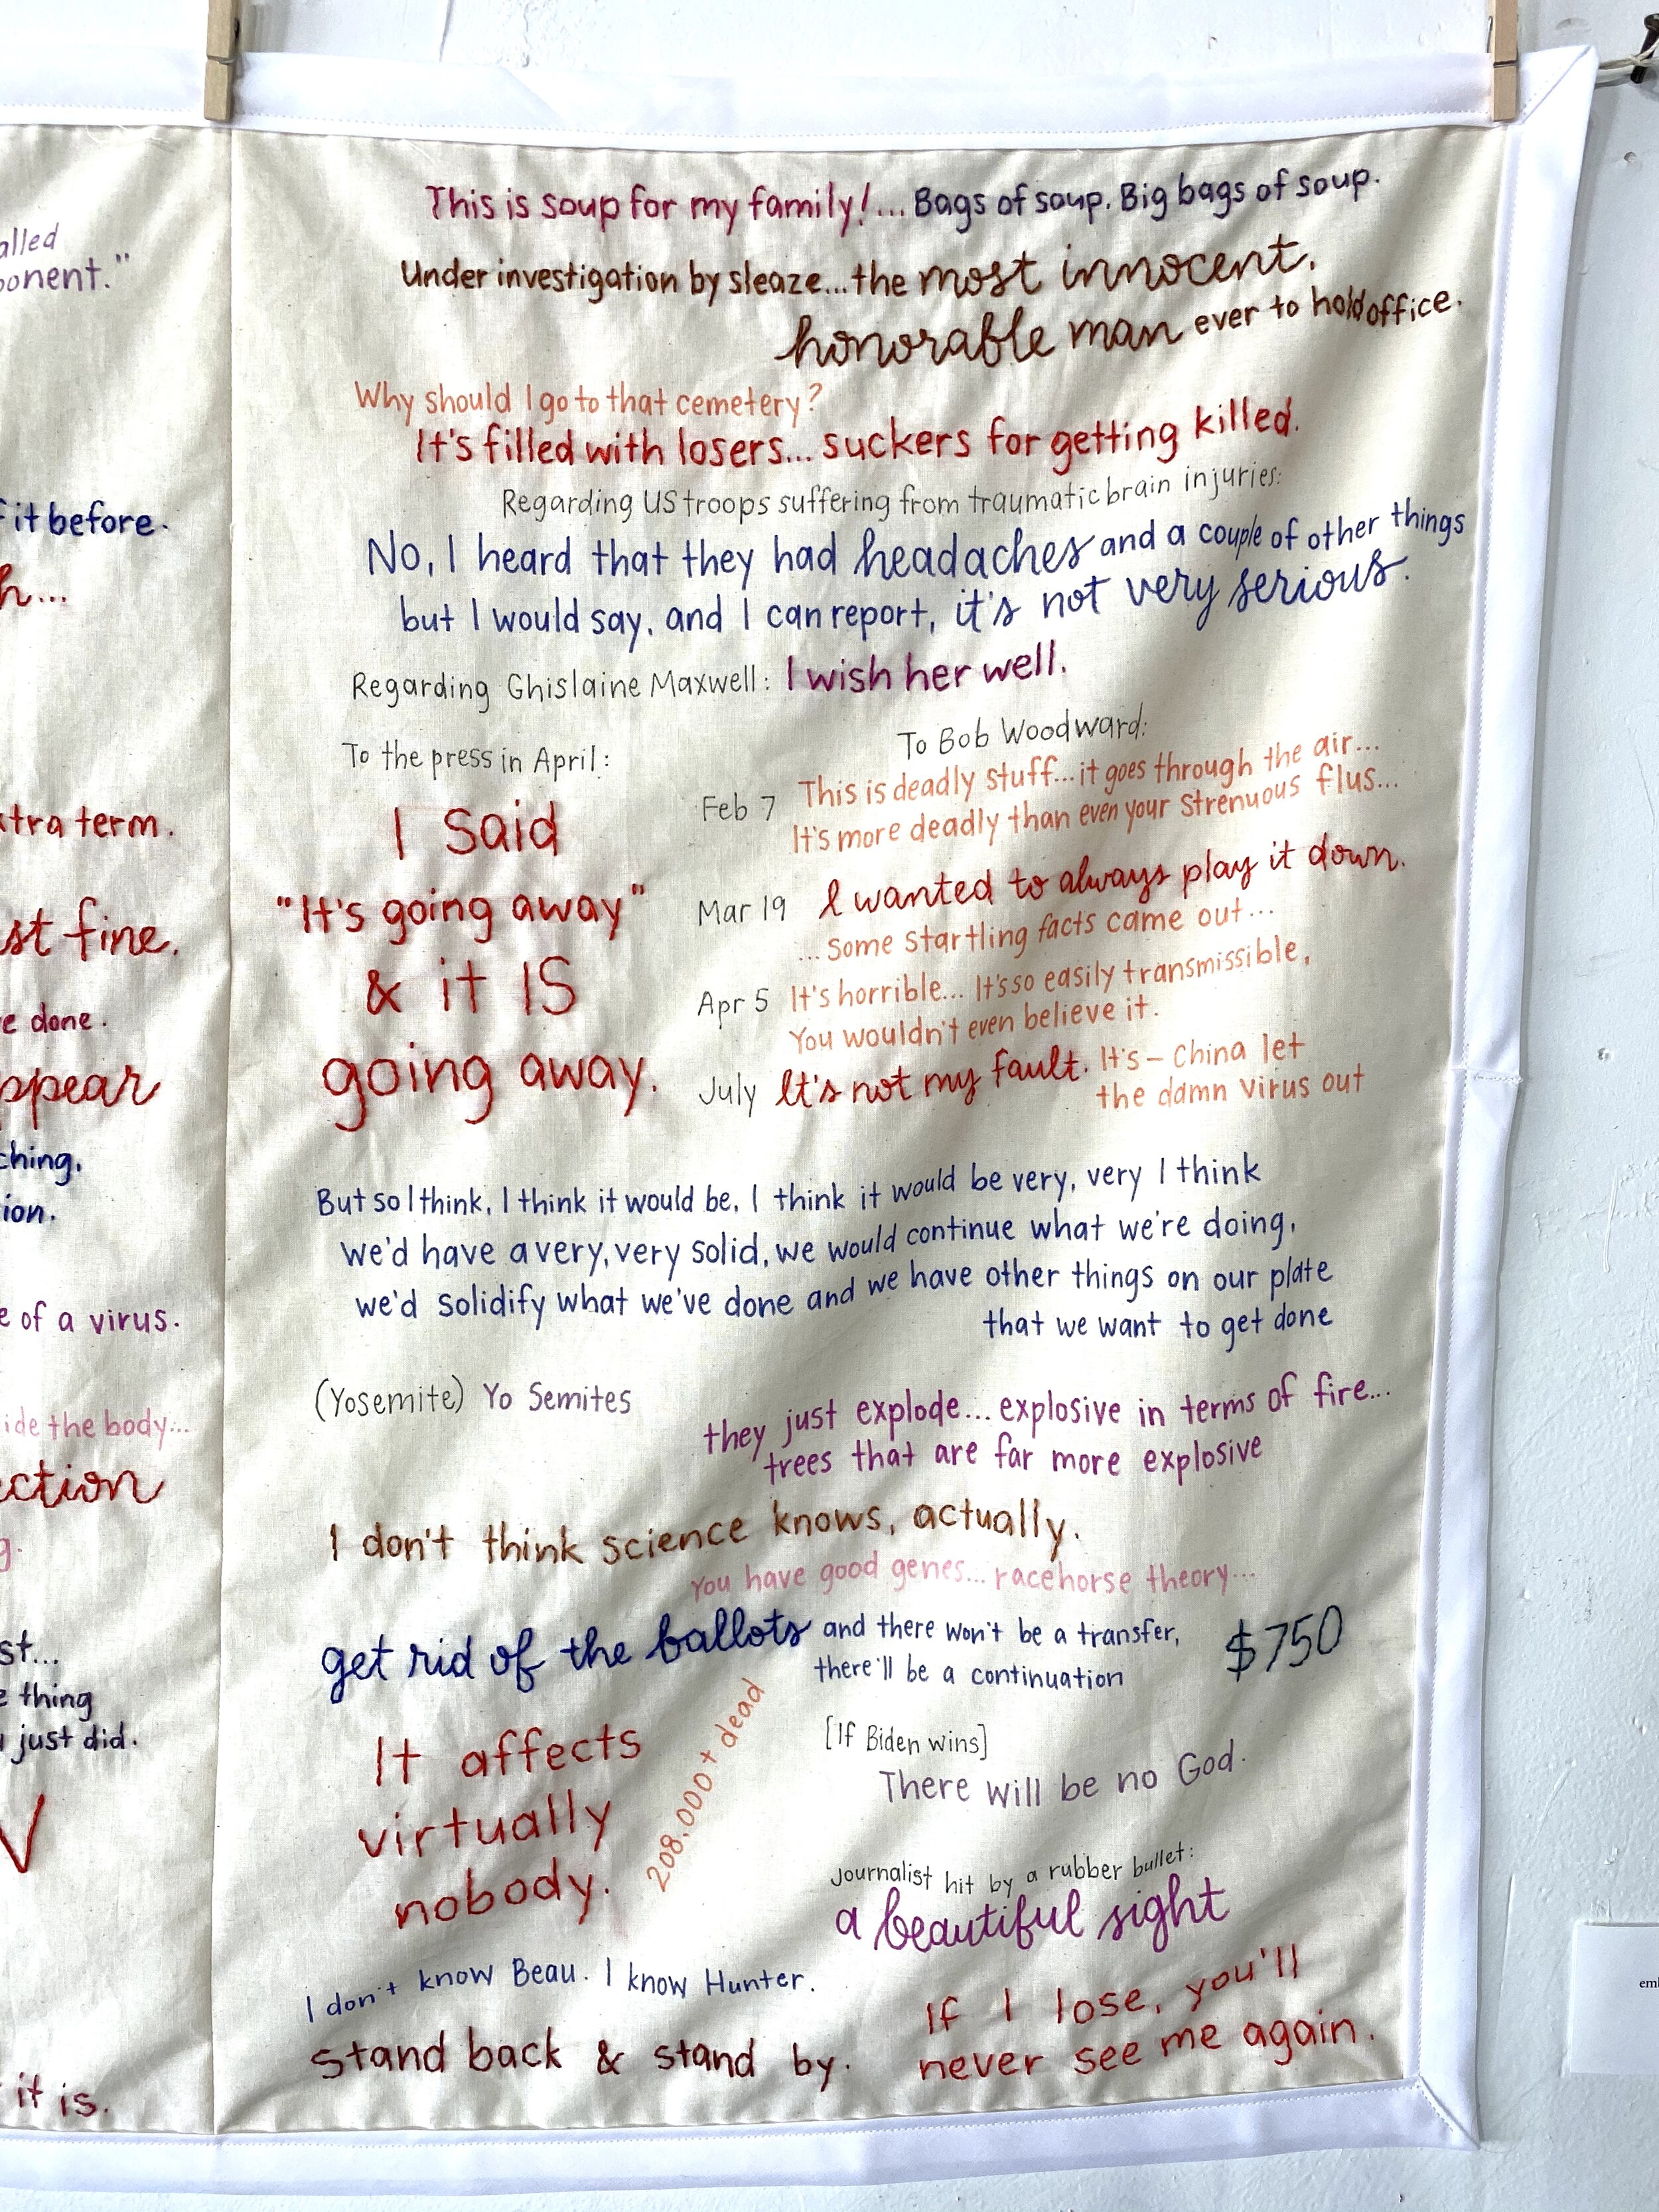 alled
ponent."
it before.
h...
xtra term.
st fine.
e done.
ppear
ching,
ion.
e of a virus.
ide the body...
ection
g.
st...
e thing
just did.
it is.
This is soup for my family!... Bags of soup. Big bags of soup.
Under investigation by sleaze...the most innocent,
honorable man ever to hold office.
Why should I go to that cemetery?
It's filled with losers... suckers for getting killed.
Regarding US troops suffering from traumatic brain injuries:
No, I heard that they had headaches and a couple of other things
but I would say, and I can report, it's not very serious.
Regarding Ghislaine Maxwell: I wish her well.
To the press in April:
I said
"It's going away"
& it IS
going away.
To Bob Woodward:
Feb 7 This is deadly stuff...it goes through the air...
It's more deadly than even your strenuous flus...
Mar 19 I wanted to always play it down.
...some startling facts came out...
Apr 5 It's horrible... It's so easily transmissible,
You wouldn't even believe it.
July It's not my fault. It's – China let
the damn virus out
But so I think, I think it would be, I think it would be very, very I think
we'd have a very, very solid, we would continue what we're doing,
we'd solidify what we've done and we have other things on our plate
that we want to get done
(Yosemite) Yo Semites
they just explode... explosive in terms of fire...
trees that are far more explosive
I don't think science knows, actually.
You have good genes... racehorse theory...
get rid of the ballots and there won't be a transfer,
there'll be a continuation
$750
It affects
virtually
nobody.
208,000+ dead
[If Biden wins]
There will be no God.
Journalist hit by a rubber bullet:
a beautiful sight
I don't know Beau. I know Hunter.
stand back & stand by.
If I lose, you'll
never see me again.
em